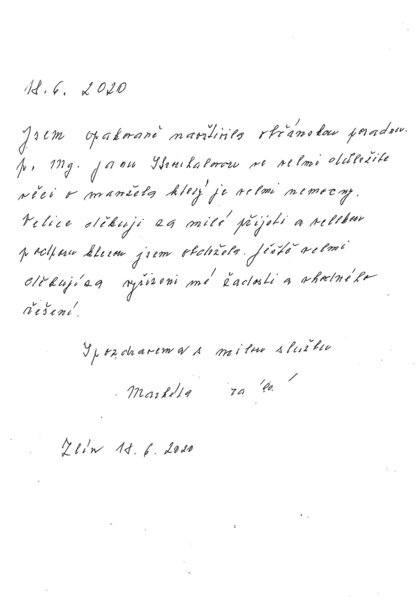 18. 6. 2020
Jsem opakovaně navštívila občanskou poradnu.
p. Ing. Janu ve velmi důležité
věci o manžela který je velmi nemocný.
Velice děkuji za milé přijetí a velikou
podporu kterou jsem obdržela. Ještě velmi
děkuji za vyřízení mé žádosti a vhodného
řešení.
S pozdravem a s milou službu
Markéta za
Zlín 18. 6. 2020